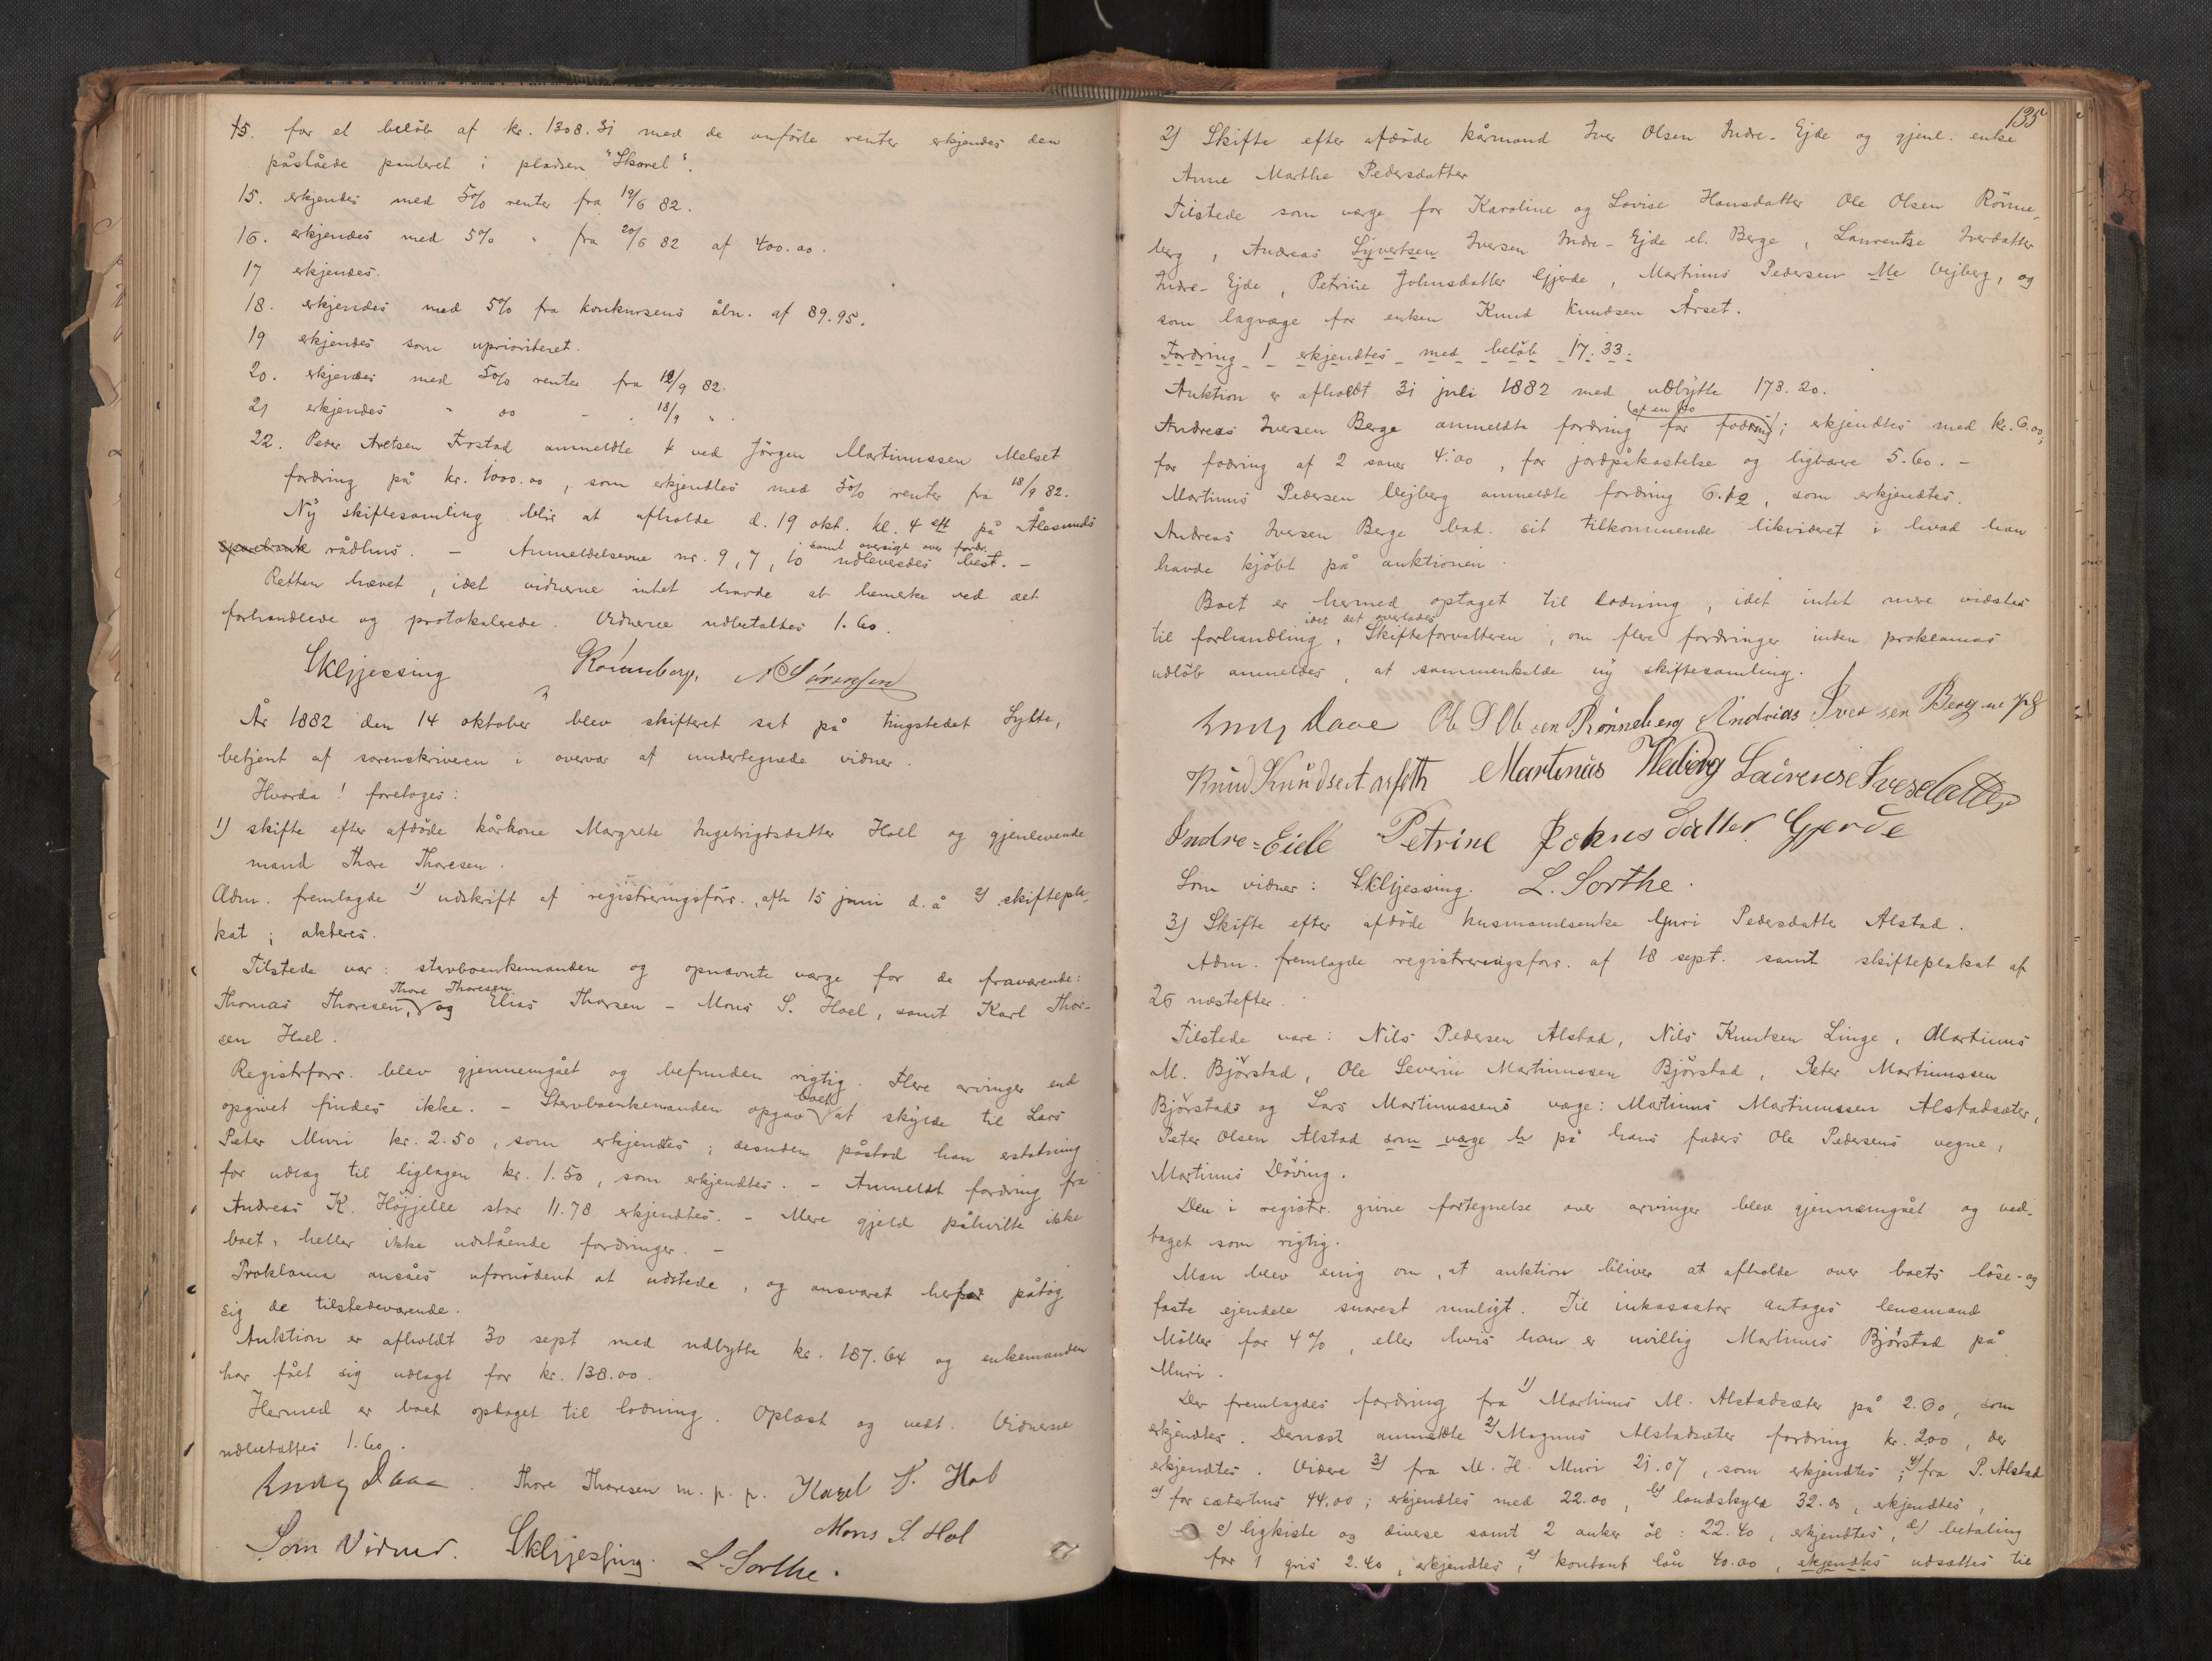 15. for et beløb af kr. 1308.31 med de anförte renter erkjendes den
påståede panteret i pladsen "Skovel".
15. erkjendes med 5% renter fra 19/6 82.
16. erkjendes med 5% " fra 20/6 82 af 400.00.
17 erkjendes.
18. erkjendes med 5% fra konkursens åbn. af 89.95.
19 erkjendes som uprioriteret.
20. erkjendes med 5% renter fra 18/9 82.
21 erkjendes - do - 18/9 ".
22. Peder Aretsen Frostad anmeldte ved Jörgen Martinussen Melset
fordring på kr. 1000.00, som erkjendtes med 5% renter fra 18/9 82.
Ny skiftesamling blir at afholde d. 19 okt. kl. 4 eft på Ålesunds
sparebank rådhus. - Anmeldelserne nr. 9, 7, 10 samt oversigt over fordr. udleveredes best. -
Retten hævet, idet vidnerne intet havde at bemerke ved det
forhandlede og protokolerede. Vidnerne udbetaltes 1.60.
Skljessing Rønneberg, N Sørensen
År 1882 den 14 oktober blev skifteret sat på tingstedet Sylte,
betjent af sorenskriveren i overvær af undertegnede vidner.
Hvorda! foretoges:
1) skifte efter afdöde kårkone Margrete Ingebrigtsdatter Hoel og gjenlevende
mand Thore Thoresen.
Adm. fremlagde 1) udskrift af registreringsforr., afh. 15 juni d. å 2) skiftepla-
kat; akteres.
Tilstede var: stervboenkemanden og opnævnte værge for de fraværende:
Thomas Thoresen, Thore Thoresen og Elias Thorsen - Mons S. Hoel, samt Karl Thor-
sen Hoel.
Registrforr. blev gjennemgået og befunden rigtig. Flere arvinger end
opgivet findes ikke. - Stervboenkemanden opgav boet at skylde til Lars
Peter Muri kr. 2.50, som erkjendtes; desuden påstod han erstatning
for udlæg til liglagen kr. 1.50, som erkjendtes. - Anmeldt fordring fra
Andreas K. Höjjelle stor 11.78 erkjendtes. - Mere gjeld påhvilte ikke
boet, heller ikke udestående fordringer. -
Proklama ansåes ufornödent at udstede, og ansvaret herfor påtog
sig de tilstedeværende.
Auktion er afholdt 30 sept med udbytte kr. 187.64 og enkemanden
har fået sig udlagt for kr. 138.00.
Hermed er boet optaget til lodning. Oplæst og vedt. Vidnerne
udbetaltes 1.60.
Thore Thoresen m. p. p. Karel T. Hol
Mons S Hol
Som Vidner. Skljessing. L. Sorthe.
135
2) Skifte efter afdöde kårmand Iver Olsen Indre-Ejde og gjenl. enke
Anne Marthe Pedersdatter
Tilstede som værge for Karoline og Lovise Hansdatter Ole Olsen Rönne-
berg, Andreas Syvertsen Iversen Indre-Ejde el. Berge, Laurentse Iverdatter
Indre-Ejde, Petrine Johnsdatter Gjerde, Martinus Pedersen Me Vejberg, og
som lagværge for enken Knud Knudsen Årset.
Fordring 1 erkjendtes med beløb 17.33.
Auktion er afholdt 31 juli 1882 med udbytte 173.20.
Andreas Iversen Berge anmeldte fordring for fodring af en ko; erkjendtes med kr. 6.00,
for fodring af 2 sauer 4.00, for jordpåkastelse og ligbærere 5.60. -
Martinus Pedersen Vejberg anmeldte fordring 6.12, som erkjendtes.
Andreas Iversen Berge bad sit tilkommende likvideret i hvad han
havde kjöbt på auktionen.
Boet er hermed optaget til lodning, idet intet mere vidstes
til forhandling, idet det overlades Skifteforvalteren, om flere fordringer inden proklamas
udløb anmeldes, at sammenkalde ny skiftesamling.
Ole O Olsen Rönneberg Andreas Iversen Berg
Knud Knudsen Arseth Martinus Weiberg Laurense Iversdatter
Indre-Eide Petrine Johnsdatter Gjerde
Som vidner: Skljessing. L. Sorthe.
3) Skifte efter afdöde husmandsenke Guri Pedersdatter Alstad.
Adm. fremlagde registreringsforr. af 18 sept. samt skifteplakat af
26 næstefter.
Tilstede vare: Nils Pedersen Alstad, Nils Knutsen Linge, Martinus
M. Björstad, Ole Severin Martinussen Björstad, Peter Martinussen
Björstads og Lars Martinussens værge: Martinus Martinussen Alstadsæter,
Peter Olsen Alstad som værge på hans faders Ole Pedersens vegne,
Martinus Döving.
Den i registr. givne fortegnelse over arvinger blev gjennemgået og ved-
taget som rigtig.
Man blev enig om, at auktion bliver at afholde over boets löse- og
faste ejendele snarest muligt. Til inkassator antages lensmand
Möller for 4%, eller hvis han er uvillig Martinus Björstad på
Muri.
Der fremlagdes fordring fra 1) Martinus M. Alstadsæter på 2.00, som
erkjendtes. Dernæst anmeldte 2) Magnus Alstadsæter fordring kr. 2.00, der
erkjendtes. Videre 3) fra M. H. Muri 21.07, som erkjendtes; 4) fra P. Alstad
a) for sæterhus 44.00; erkjendtes med 22.00, b) landskyld 32.00, erkjendtes,
c) ligkiste og diverse samt 2 anker öl: 22.40, erkjendtes, d) betaling
for 1 gris 2.40, erkjendtes, e) kontant lån 40.00, erkjendtes udsættes til